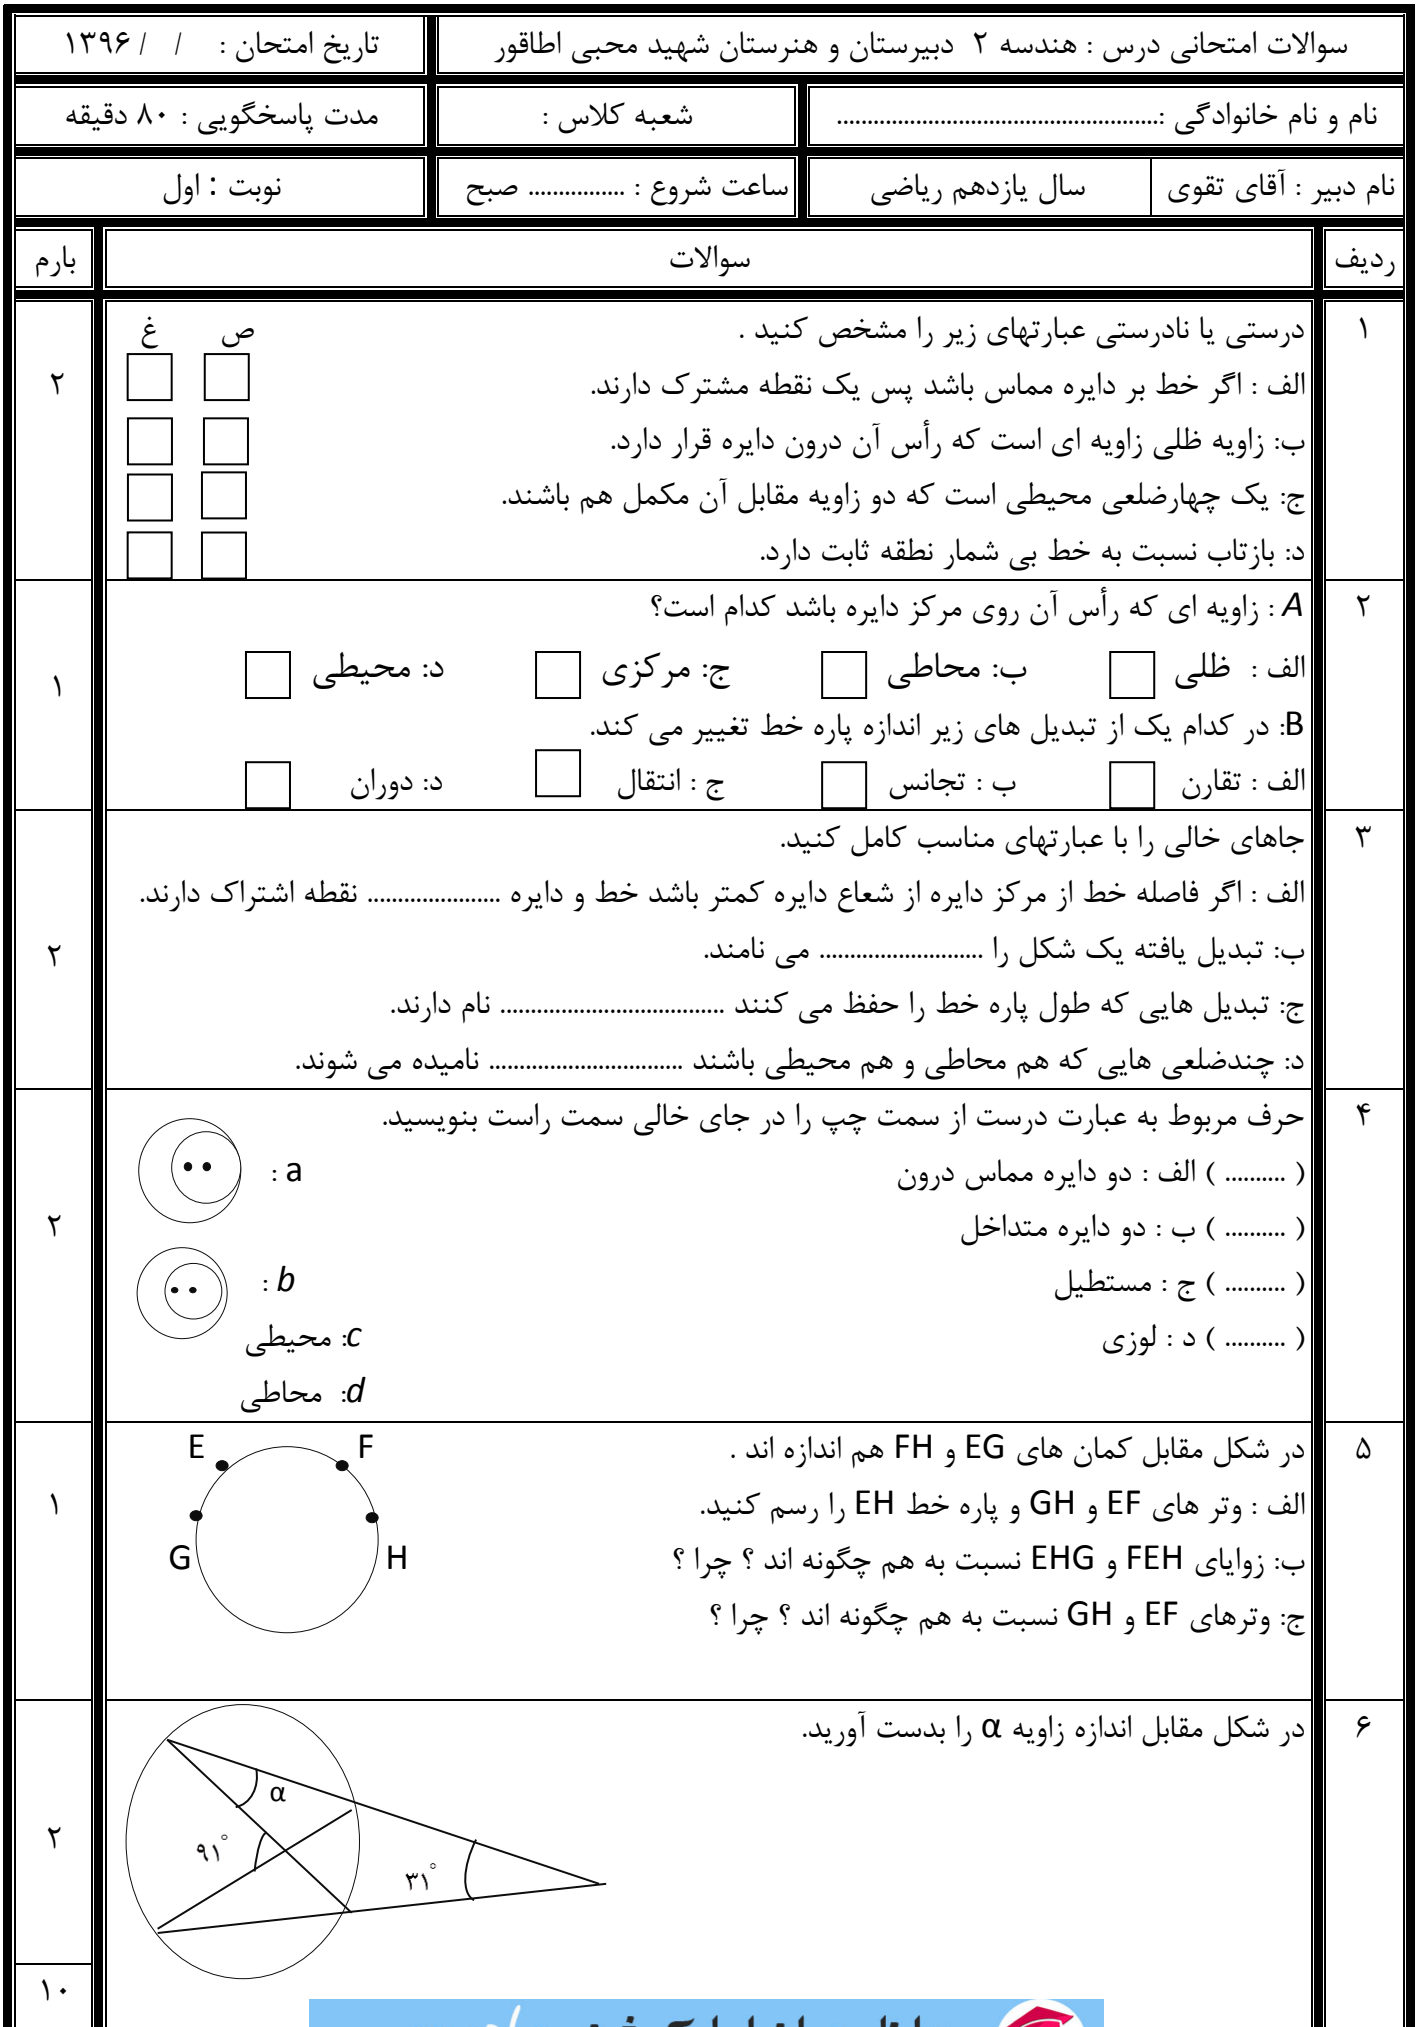 سوالات امتحانی درس : هندسه ۲ دبیرستان و هنرستان شهید محبی اطاقور
تاریخ امتحان : / / ۱۳۹۶
نام و نام خانوادگی :.....................................................
شعبه کلاس :
مدت پاسخگویی : ۸۰ دقیقه
نام دبیر : آقای تقوی
سال یازدهم ریاضی
ساعت شروع : ................ صبح
نوبت : اول
ردیف
سوالات
بارم
۱
درستی یا نادرستی عبارتهای زیر را مشخص کنید .
ص غ
الف : اگر خط بر دایره مماس باشد پس یک نقطه مشترک دارند.
۲
ب: زاویه ظلی زاویه ای است که رأس آن درون دایره قرار دارد.
ج: یک چهارضلعی محیطی است که دو زاویه مقابل آن مکمل هم باشند.
د: بازتاب نسبت به خط بی شمار نطقه ثابت دارد.
۲
A : زاویه ای که رأس آن روی مرکز دایره باشد کدام است؟
الف : ظلی ب: محاطی ج: مرکزی د: محیطی
۱
B: در کدام یک از تبدیل های زیر اندازه پاره خط تغییر می کند.
الف : تقارن ب : تجانس ج : انتقال د: دوران
۳
جاهای خالی را با عبارتهای مناسب کامل کنید.
الف : اگر فاصله خط از مرکز دایره از شعاع دایره کمتر باشد خط و دایره ...................... نقطه اشتراک دارند.
ب: تبدیل یافته یک شکل را ........................... می نامند.
۲
ج: تبدیل هایی که طول پاره خط را حفظ می کنند ..................................... نام دارند.
د: چندضلعی هایی که هم محاطی و هم محیطی باشند ................................ نامیده می شوند.
۴
حرف مربوط به عبارت درست از سمت چپ را در جای خالی سمت راست بنویسید.
( .......... ) الف : دو دایره مماس درون
a :
( .......... ) ب : دو دایره متداخل
۲
( .......... ) ج : مستطیل
b :
( .......... ) د : لوزی
c: محیطی
d: محاطی
۵
در شکل مقابل کمان های EG و FH هم اندازه اند .
E F
الف : وتر های EF و GH و پاره خط EH را رسم کنید.
۱
ب: زوایای FEH و EHG نسبت به هم چگونه اند ؟ چرا ؟
G H
ج: وترهای EF و GH نسبت به هم چگونه اند ؟ چرا ؟
۶
در شکل مقابل اندازه زاویه α را بدست آورید.
α
۲
۹۱°
۳۱°
۱۰